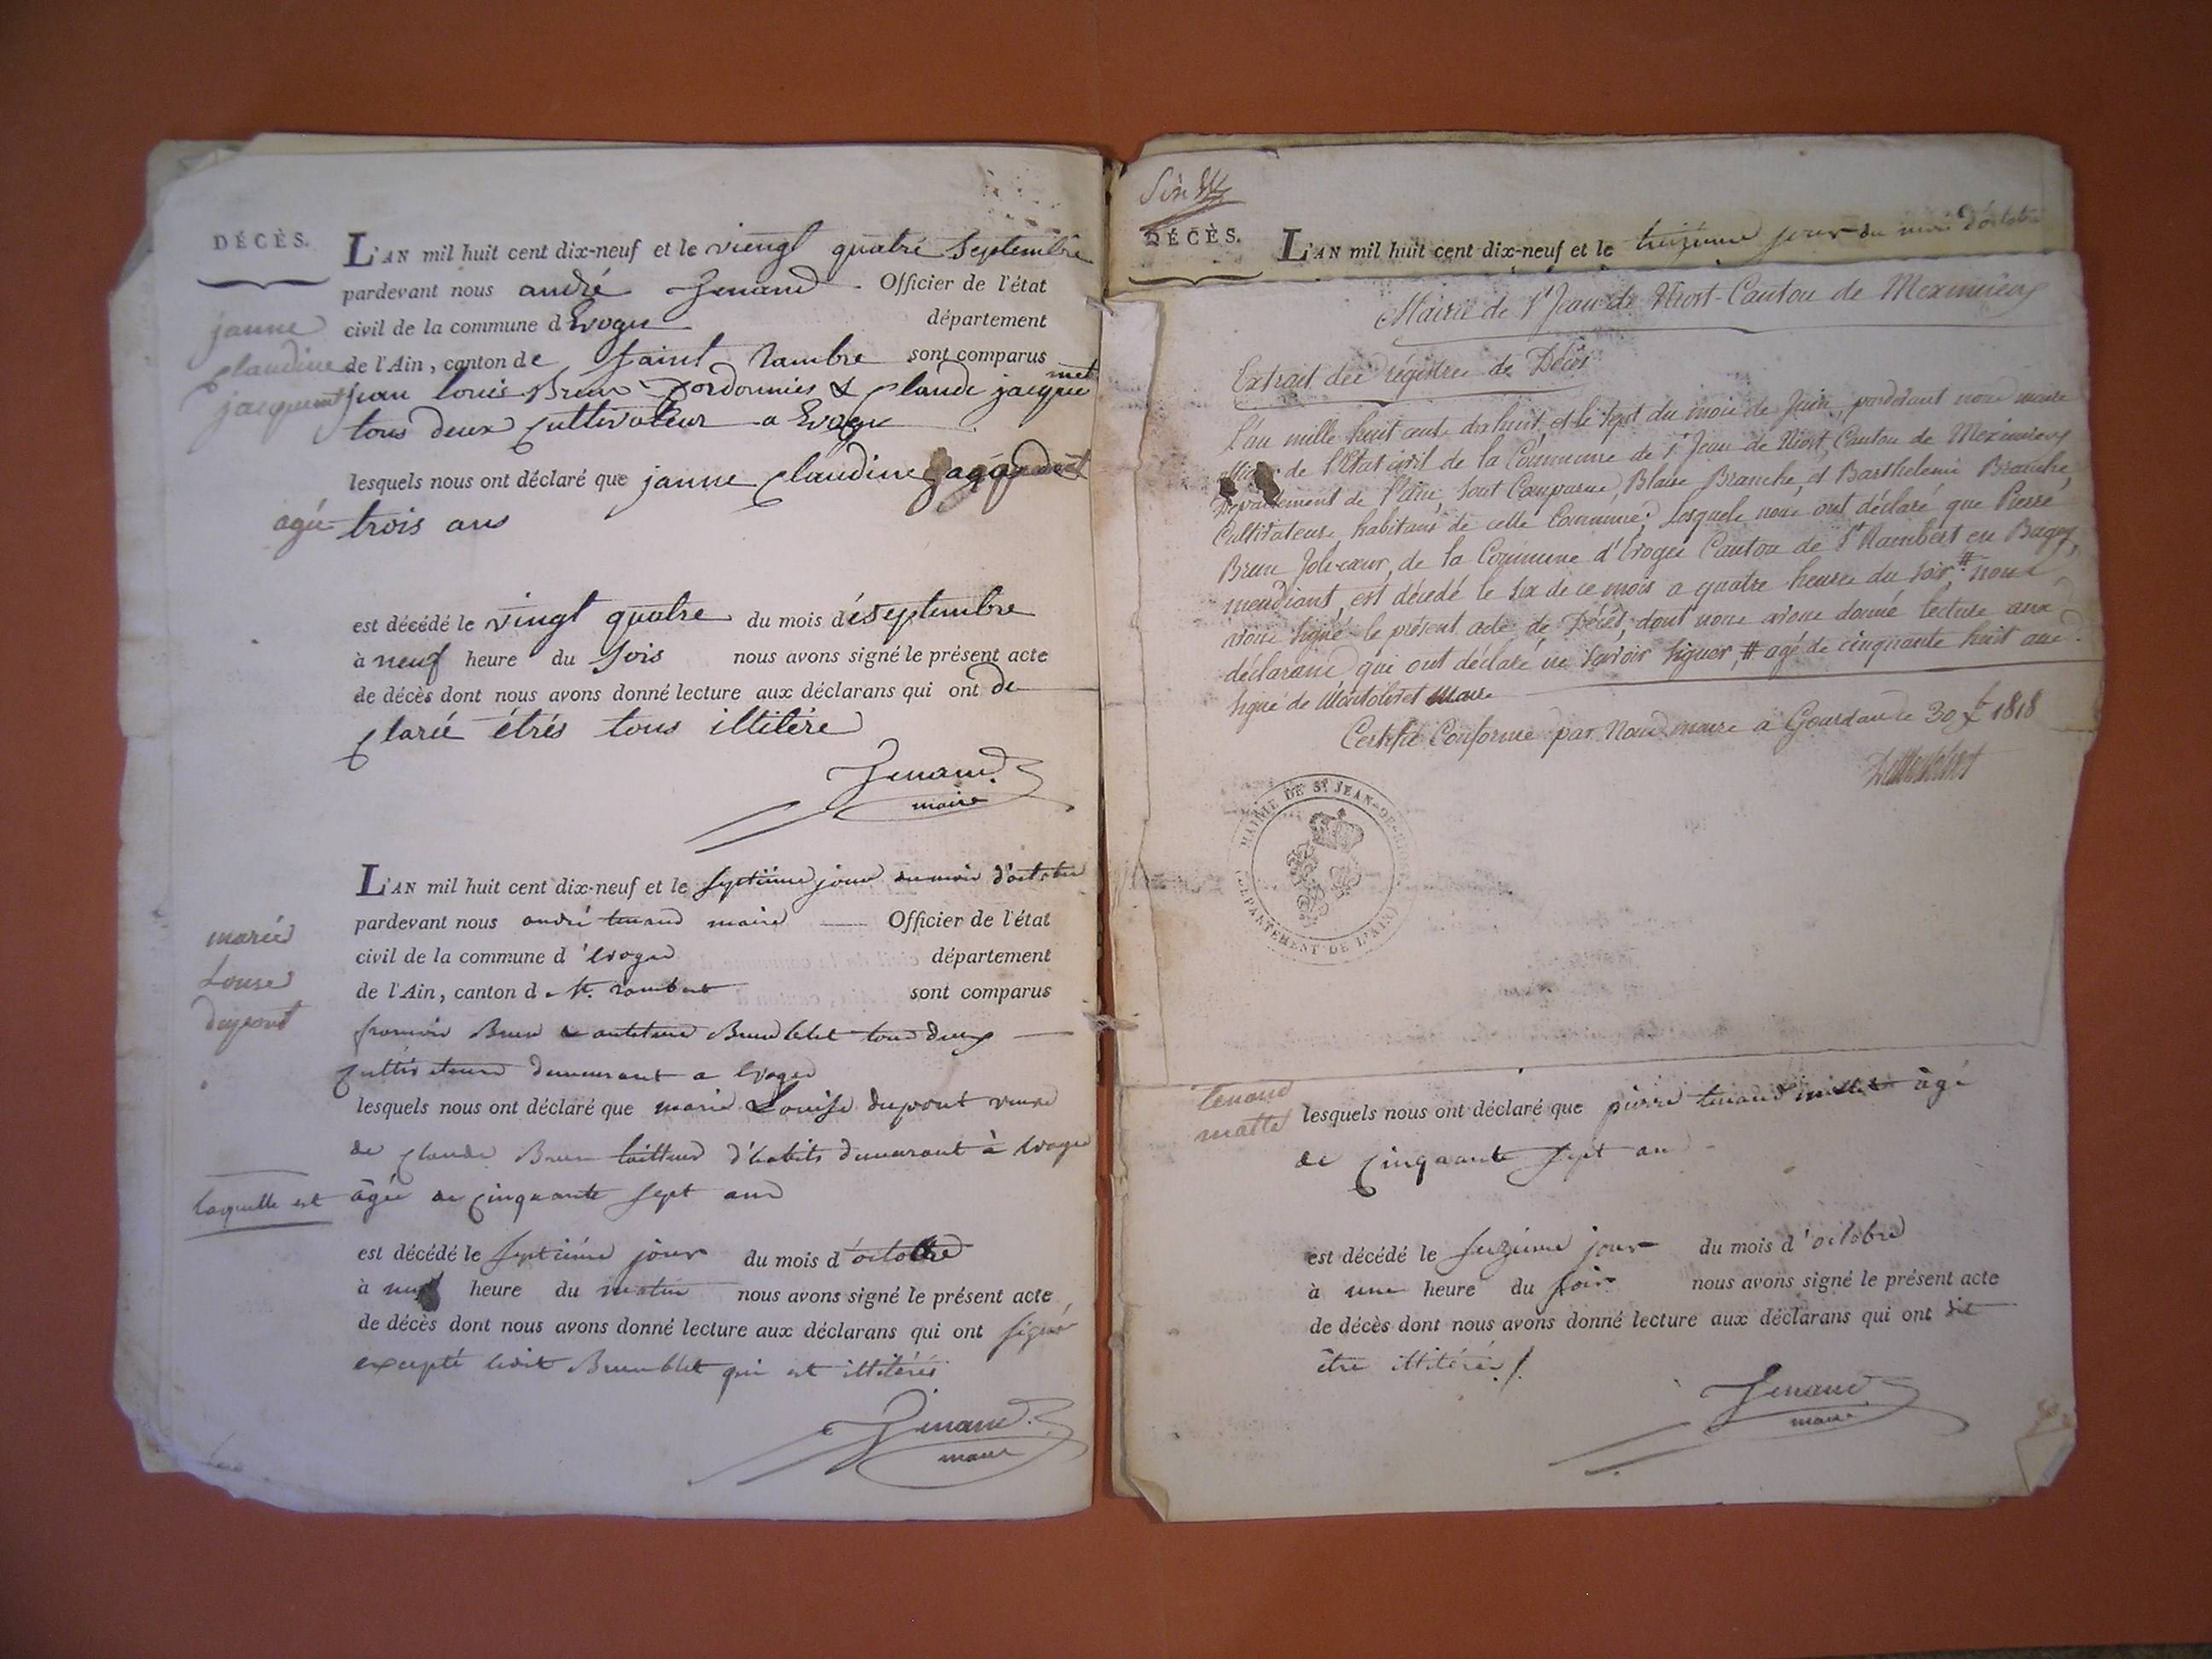 DÉCÈS.
L'AN mil huit cent dix-neuf et le viengt quatré Septembre
pardevant nous andré Tenand Officier de l'état
civil de la commune d'Evoges département
de l'Ain, canton de Saint Rambre sont comparus
janne
claudine
jacquemet
jean louis Brun Cordonnies & Claude jacque
met
tous deux Cultivateur a Evoge
lesquels nous ont déclaré que janne Claudine
agé trois ans
est décédé le vingt quatre du mois de septembre
à neuf heure du Soir nous avons signé le présent acte
de décès dont nous avons donné lecture aux déclarans qui ont dé
clarié étrés tous illitére
Tenand
maire
L'AN mil huit cent dix-neuf et le septième jour du mois d'octobre
pardevant nous andré tenand maire Officier de l'état
civil de la commune d'Evoges département
de l'Ain, canton de St. rambert sont comparus
marie
Louise
dupont
Brun & Brun blet tous deux
Cultivateurs demeurant a Evoges
lesquels nous ont déclaré que marie Louise dupont veuve
de Claude Brun tailleur d'habits demeurant à Evoges
laquelle est
âgée de Cinquante Sept ans
est décédé le septième jour du mois d'octobre
à heure du matin nous avons signé le présent acte
de décès dont nous avons donné lecture aux déclarans qui ont signé
excepté ledit Brun blet qui est illitérés
Tenand
maire
DÉCÈS.
L'AN mil huit cent dix-neuf et le jour du mois d'octobre
Mairie de St Jean de Niost Canton de Meximieux
Extrait des régistres de Décès
L'an mille huit cent dix huit, et le Sept du mois de Juin, pardevant nous maire
officier de l'Etat civil de la Commune de St Jean de Niost, Canton de Meximieux
Département de l'ain, Sont Comparus, Blaise Branche, et Barthelemi Branche,
Cultivateurs, habitans de cette Commune; Lesquels nous ont déclaré que Pierre
Brun Joli-cœur, de la Commune d'Evoges Canton de St Rambert en Bugey,
mendiant, est décédé le Six de ce mois a quatre heures du Soir, # nous
avons Signé le présent acte de Décès, dont nous avons donné lecture aux
déclarans qui ont déclaré ne Savoir Signer, # agé de cinquante huit ans.
Signé de Montolivet Maire
Certifié Conforme par Nous maire a Gourdan le 30 1818
MAIRIE DE ST JEAN-DE-NIOST
DEPARTEMENT DE L'AIN
tenand
matte
lesquels nous ont déclaré que pierre tenand âgé
de Cinquante Sept ans
est décédé le jour du mois d'octobre
à une heure du soir nous avons signé le présent acte
de décès dont nous avons donné lecture aux déclarans qui ont dit
être illitérés
Tenand
maire